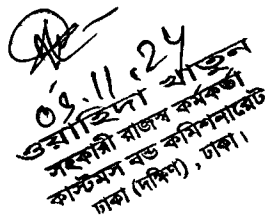 ০৫.১১.২৪
ওয়াহিদা খাতুন
সহকারী রাজস্ব কর্মকর্তা
কাস্টমস বন্ড কমিশনারেট
ঢাকা (দক্ষিণ), ঢাকা।